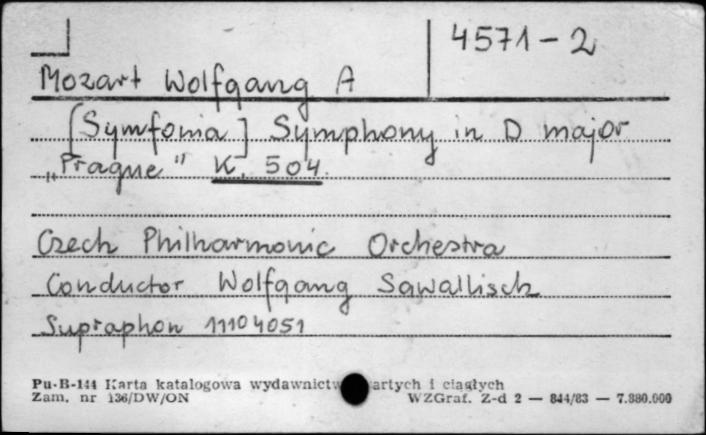 4571-2
Mozart Wolfgang A
[Symfonia] Symphony in D major
„Prague" K. 504.
Czech Philharmonic Orchestra
Conductor Wolfgang Sawallisch
Supraphon 11104051
Pu-B-144 Karta katalogowa wydawnictw artych i ciągłych
Zam. nr 136/DW/ON WZGraf. Z-d 2 — 844/83 — 7.880.000